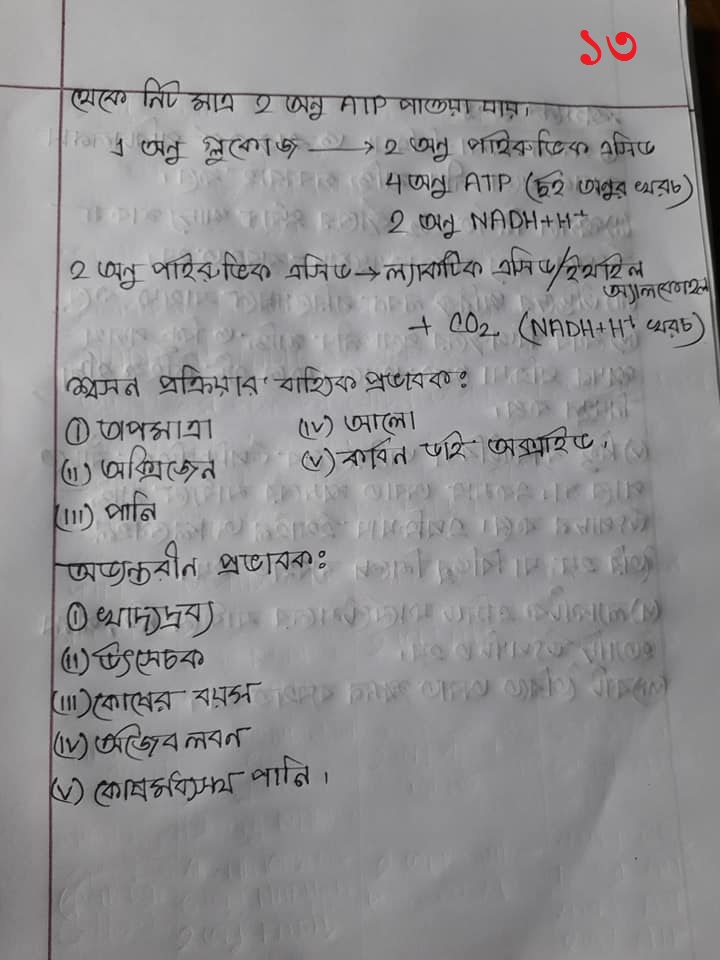 ১৩
থেকে নিট মাত্র 2 অনু ATP পাওয়া যায়।
1 অনু গ্লুকোজ → 2 অনু পাইরুভিক এসিড
4 অনু ATP (দুই অনুর খরচ)
2 অনু NADH+H⁺
2 অনু পাইরুভিক এসিড → ল্যাকটিক এসিড/ইথাইল
অ্যালকোহল
+ CO₂ (NADH+H⁺ খরচ)
শ্বসন প্রক্রিয়ার বাহ্যিক প্রভাবক:
(i) তাপমাত্রা (iv) আলো
(ii) অক্সিজেন (v) কার্বন ডাই অক্সাইড।
(iii) পানি
অভ্যন্তরীন প্রভাবক:
(i) খাদ্যদ্রব্য
(ii) উৎসেচক
(iii) কোষের বয়স
(iv) অজৈব লবন
(v) কোষমধ্যস্থ পানি।